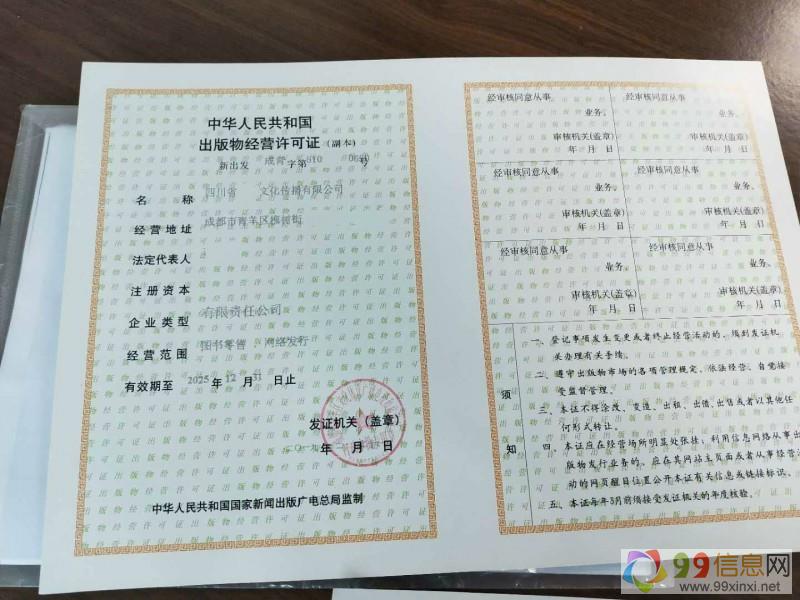 中华人民共和国
出版物经营许可证(副本)
新出发 成青 字第 510 号
名称 四川省 文化传播有限公司
经营地址 成都市青羊区
法定代表人
注册资本
企业类型 有限责任公司
经营范围 图书零售 网络发行
有效期至 2025年12月31日止
发证机关(盖章)
年 月 日
中华人民共和国国家新闻出版广电总局监制
经审核同意从事
业务。
审核机关(盖章)
年 月 日
经审核同意从事
业务。
审核机关(盖章)
年 月 日
经审核同意从事
业务。
审核机关(盖章)
年 月 日
经审核同意从事
业务。
审核机关(盖章)
年 月 日
经审核同意从事
业务。
审核机关(盖章)
年 月 日
经审核同意从事
业务。
审核机关(盖章)
年 月 日
须知
一、登记事项发生变更或者终止经营活动的,须到发证机
关办理有关手续。
二、遵守出版物市场的各项管理规定,依法经营、自觉接
受监督管理。
三、本证不得涂改、变造、出租、出借、出售或者以其他任
何形式转让。
四、本证应在经营场所明显处张挂;利用信息网络从事出
版物发行业务的,应在其网站主页面或者从事经营活
动的网页醒目位置公开本证有关信息或链接标识。
五、本证每年3月前须接受发证机关的年度核验。
99信息网
www.99xinxi.net